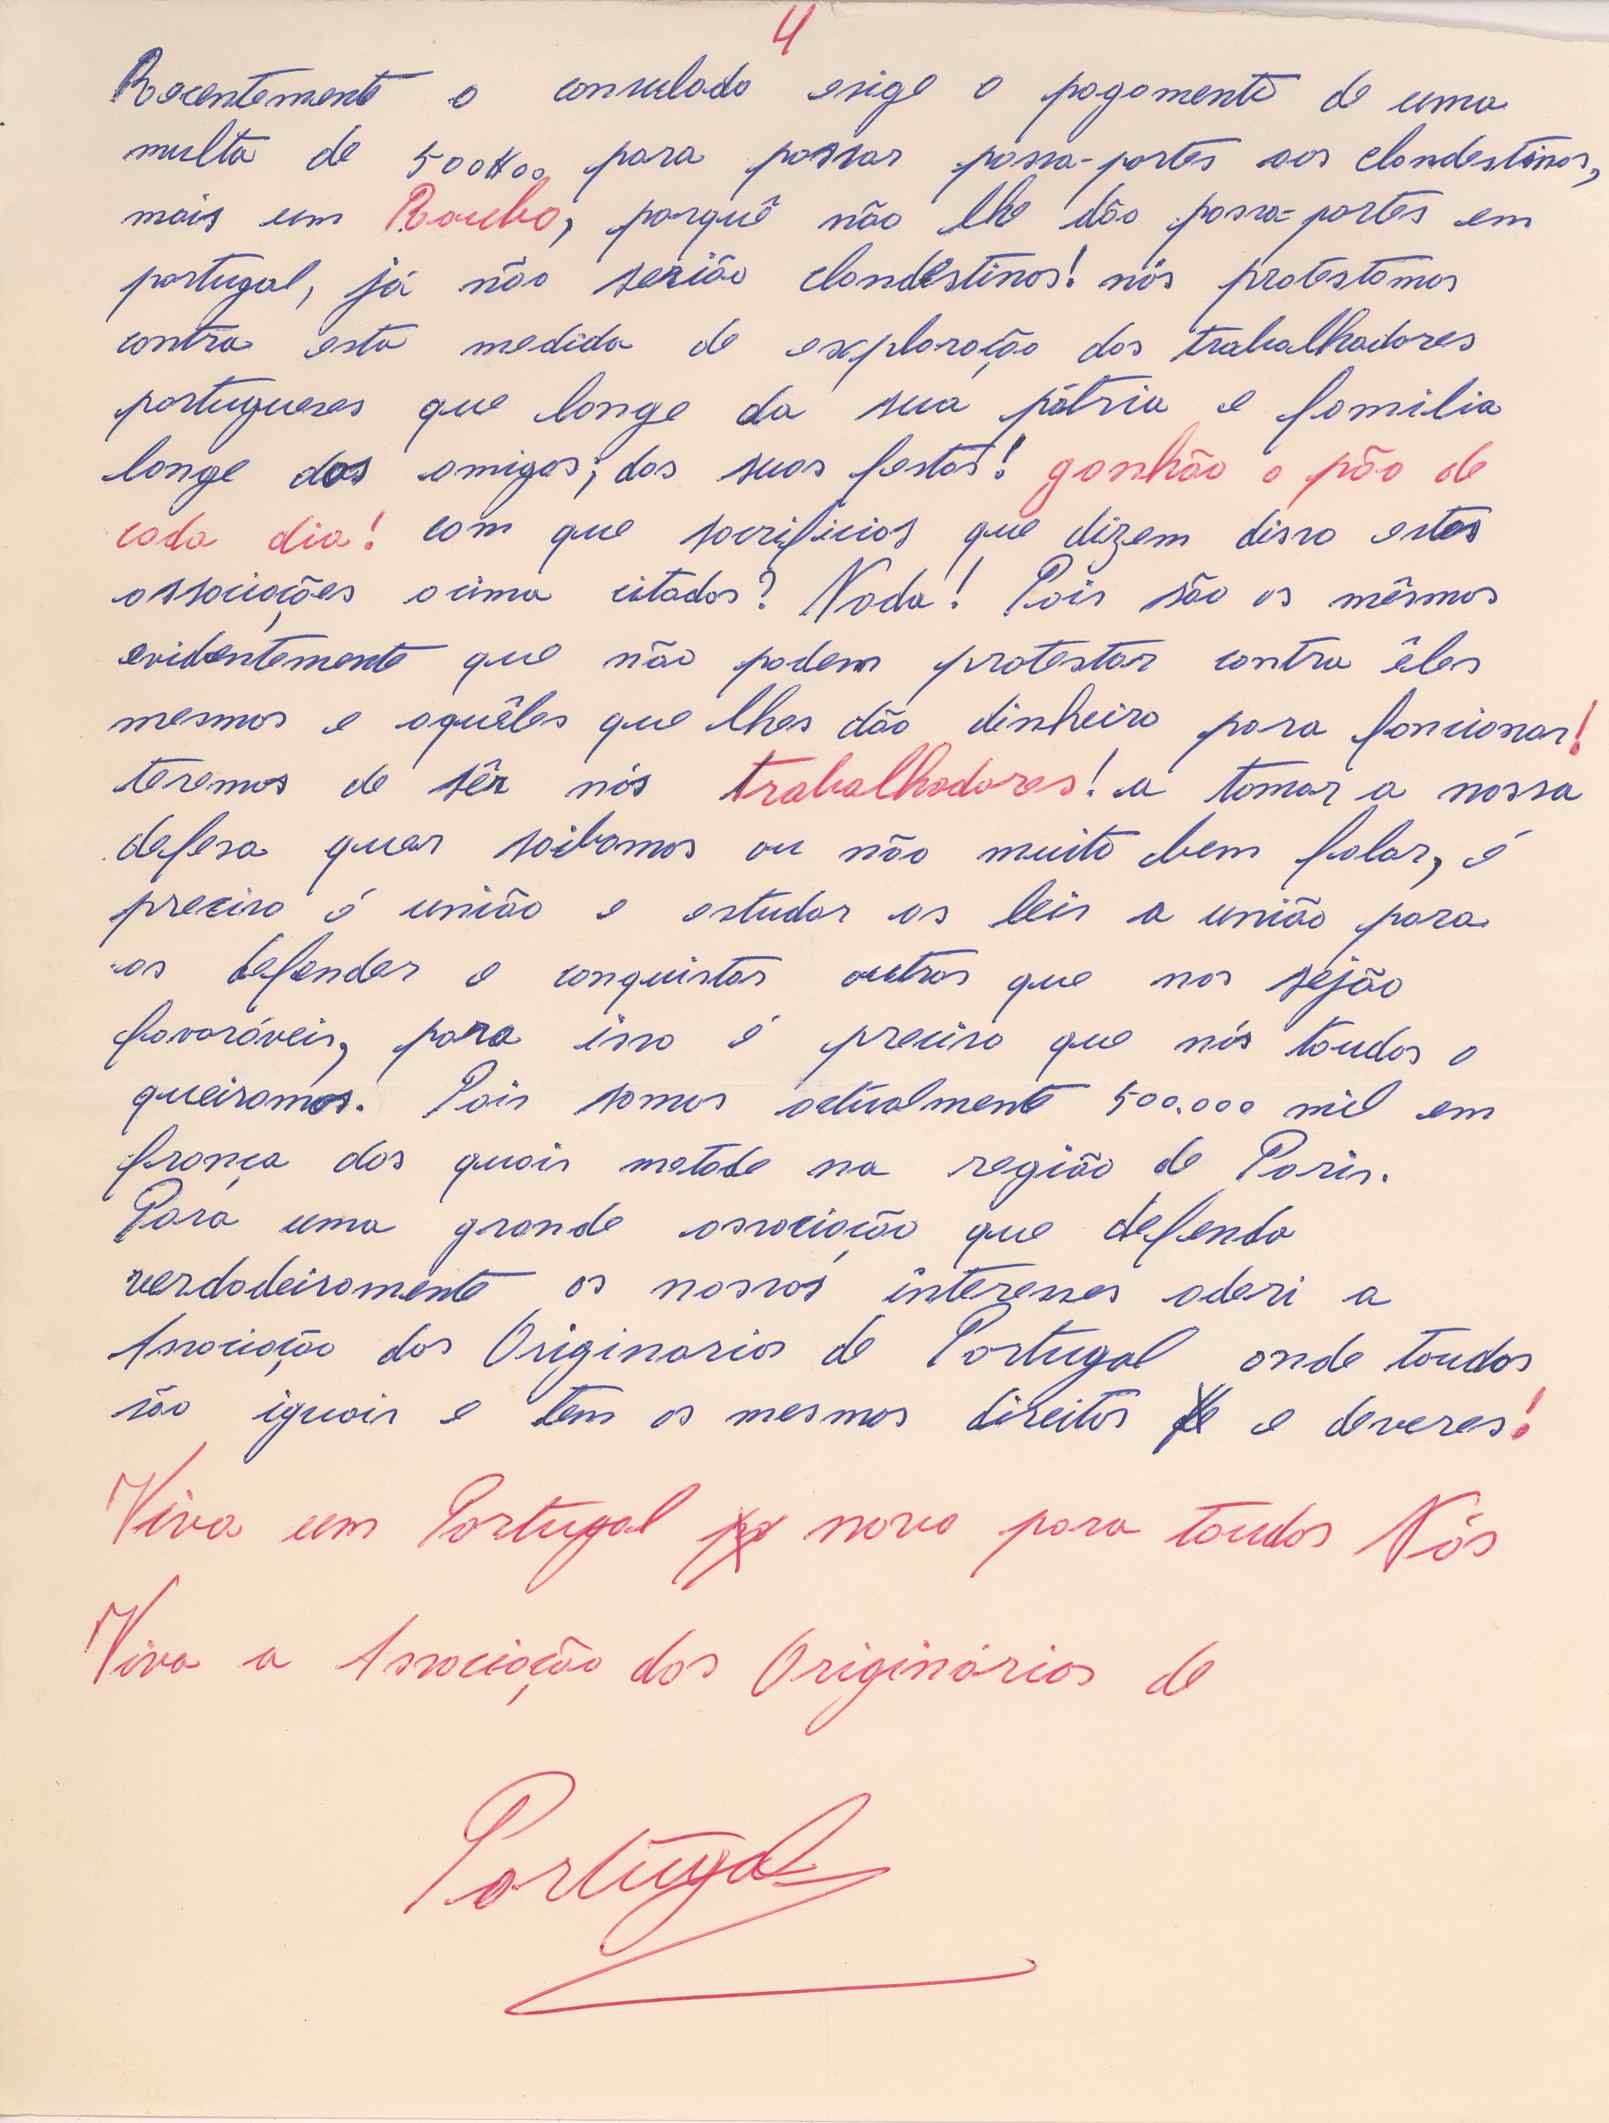 4
Recentemente o consulado exige o pagamento de uma
multa de 500$00 para passar passa-portes aos clandestinos,
mais um Roubo, porquê não lhe dão passa-portes em
portugal, já não serião clandestinos! nós protestamos
contra esta medida de exploração dos trabalhadores
portugueses que longe da sua pátria e familia
longe dos amigos, das suas festas! ganhão o pão de
cada dia! com que sacrificios que dizem disso estas
associações acima citadas? Nada! Pois são os mêsmos
evidentemente que não podem protestar contra êles
mesmos e aquêles que lhes dão dinheiro para foncionar!
teremos de sêr nós trabalhadores! a tomar a nossa
defesa quer saibamos ou não muito bem falar, é
preciso é união e estudar as leis a união para
as defender e conquistar outras que nos sejão
favoráveis, para isso é preciso que nós toudos o
queiramos. Pois somos actualmente 500.000 mil em
frança dos quais metade na região de Paris.
Para uma grande associação que defenda
verdadeiramente os nossos interesses aderi a
Associação dos Originarios de Portugal onde toudos
são iguais e tem os mesmos direitos de e deveres!
Viva um Portugal novo para toudos Nós
Viva a Associação dos Originários de
Portugal